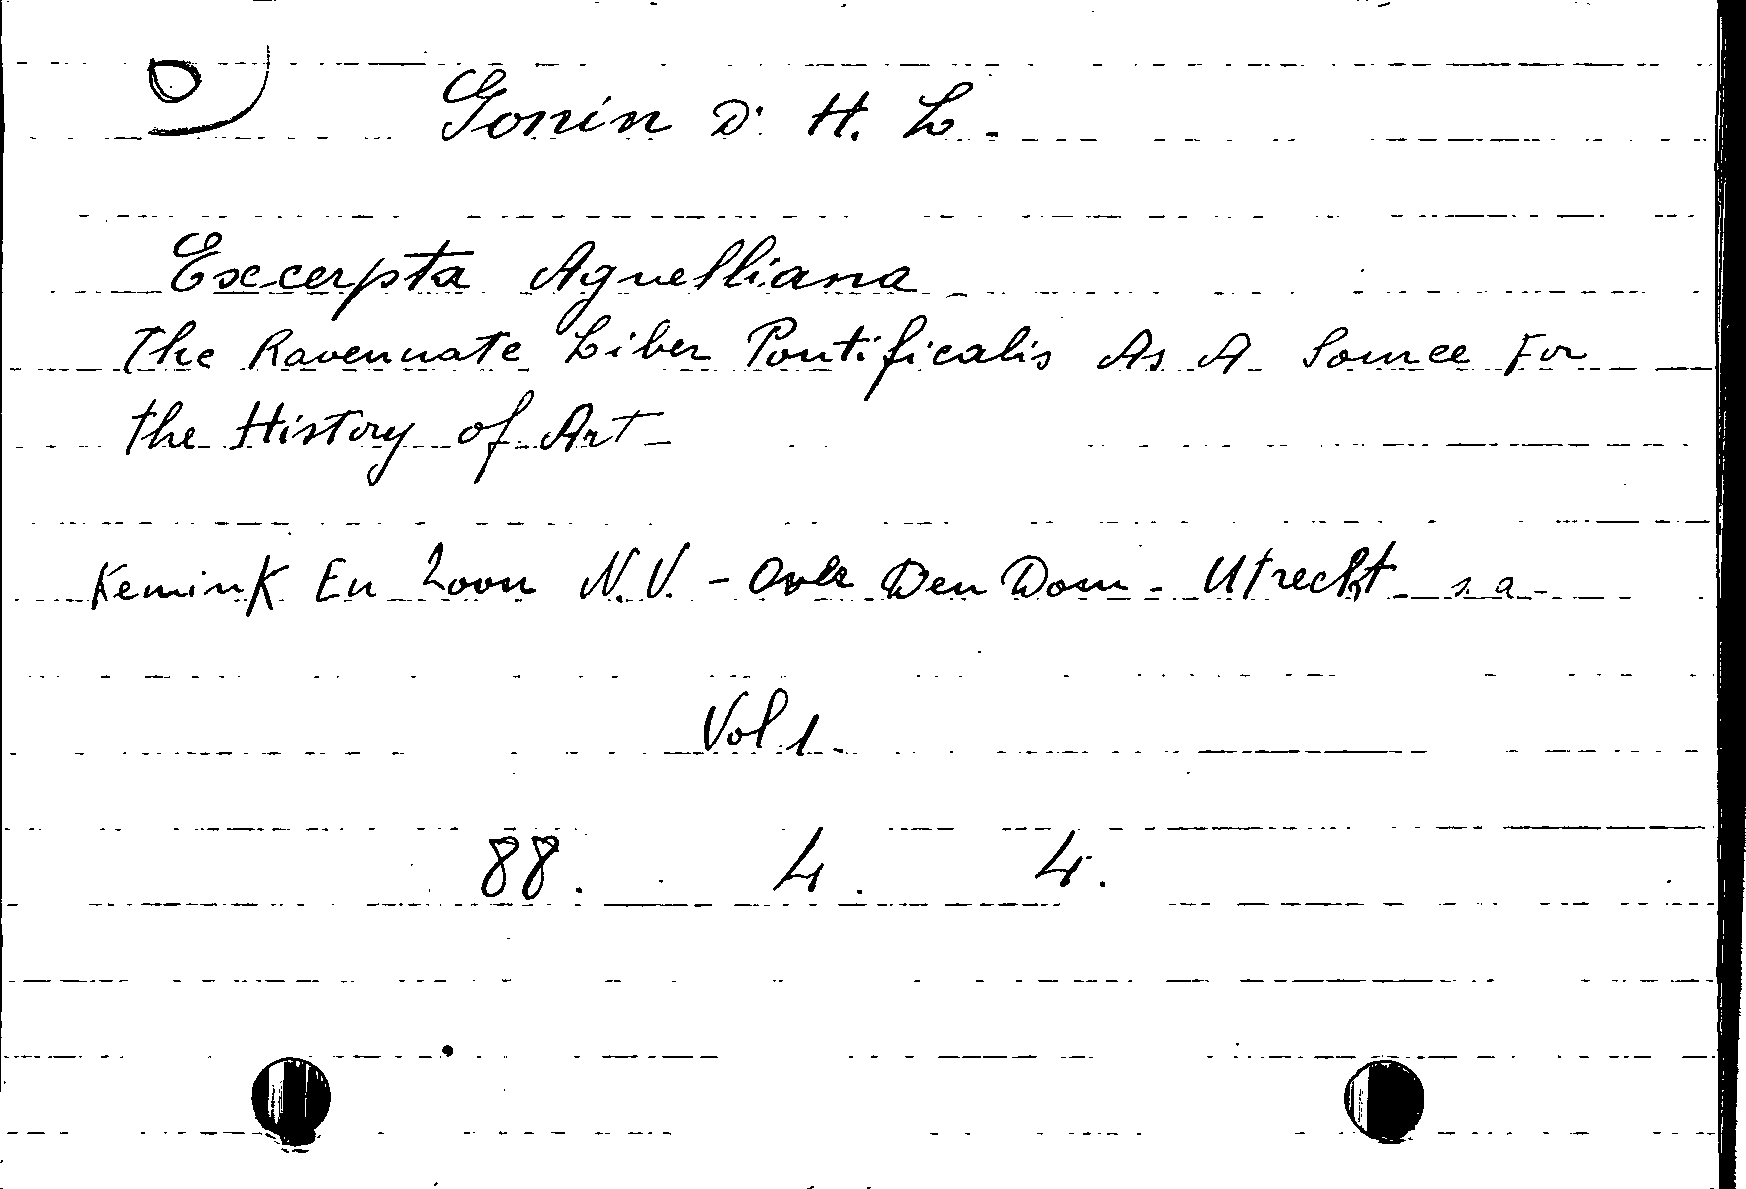 Gonin Dr H. L.
Excerpta Agnelliana
The Ravennate Liber Pontificalis As A Source For
the History of Art
Kemink En Zoon N.V. - Over Den Dom - Utrecht s. a.
Vol 1.
88. 4. 4.